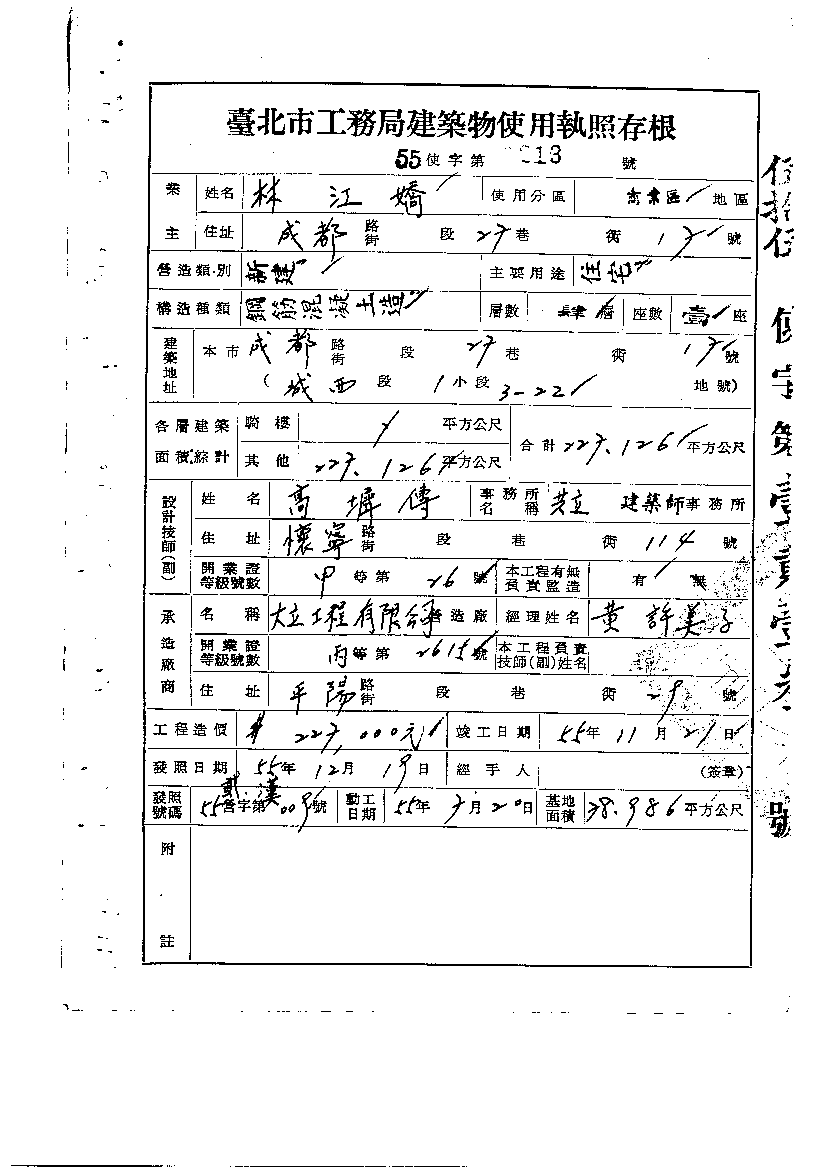 臺北市工務局建築物使用執照存根
55使字第 013 號
業主 姓名 林江嬌 使用分區 商業區 地區
住址 成都 路街 段 27巷 衖 17 號
營造類別 新建 主要用途 住宅
構造種類 鋼筋混凝土造 層數 層 座數 壹座
建築地址 本市成都 路街 段 27巷 衖 17號
(城西段 1小段 3-22 地號)
各層建築面積綜計 騎樓 平方公尺 合計 227.126 平方公尺
其他 227.126 平方公尺
設計技師(副) 姓名 高 傳 事務所名稱 共立 建築師事務所
住址 懷寧 路街 段 巷 衖 114 號
開業證等級號數 甲等第 26 號 本工程有無負責監造 有 無
承造廠商 名稱 大立工程有限公司 營造廠 經理姓名 黃許美子
開業證等級號數 丙等第 2615 號 本工程負責技師(副)姓名
住址 平陽 路街 段 巷 衖 29 號
工程造價 227,000元 竣工日期 55年11月21日
發照日期 55年12月19日 經手人 (簽章)
戴 漢
發照號碼 55營字第009號 動工日期 55年7月20日 基地面積 78.986 平方公尺
附註
伍拾伍 使字第 壹 號